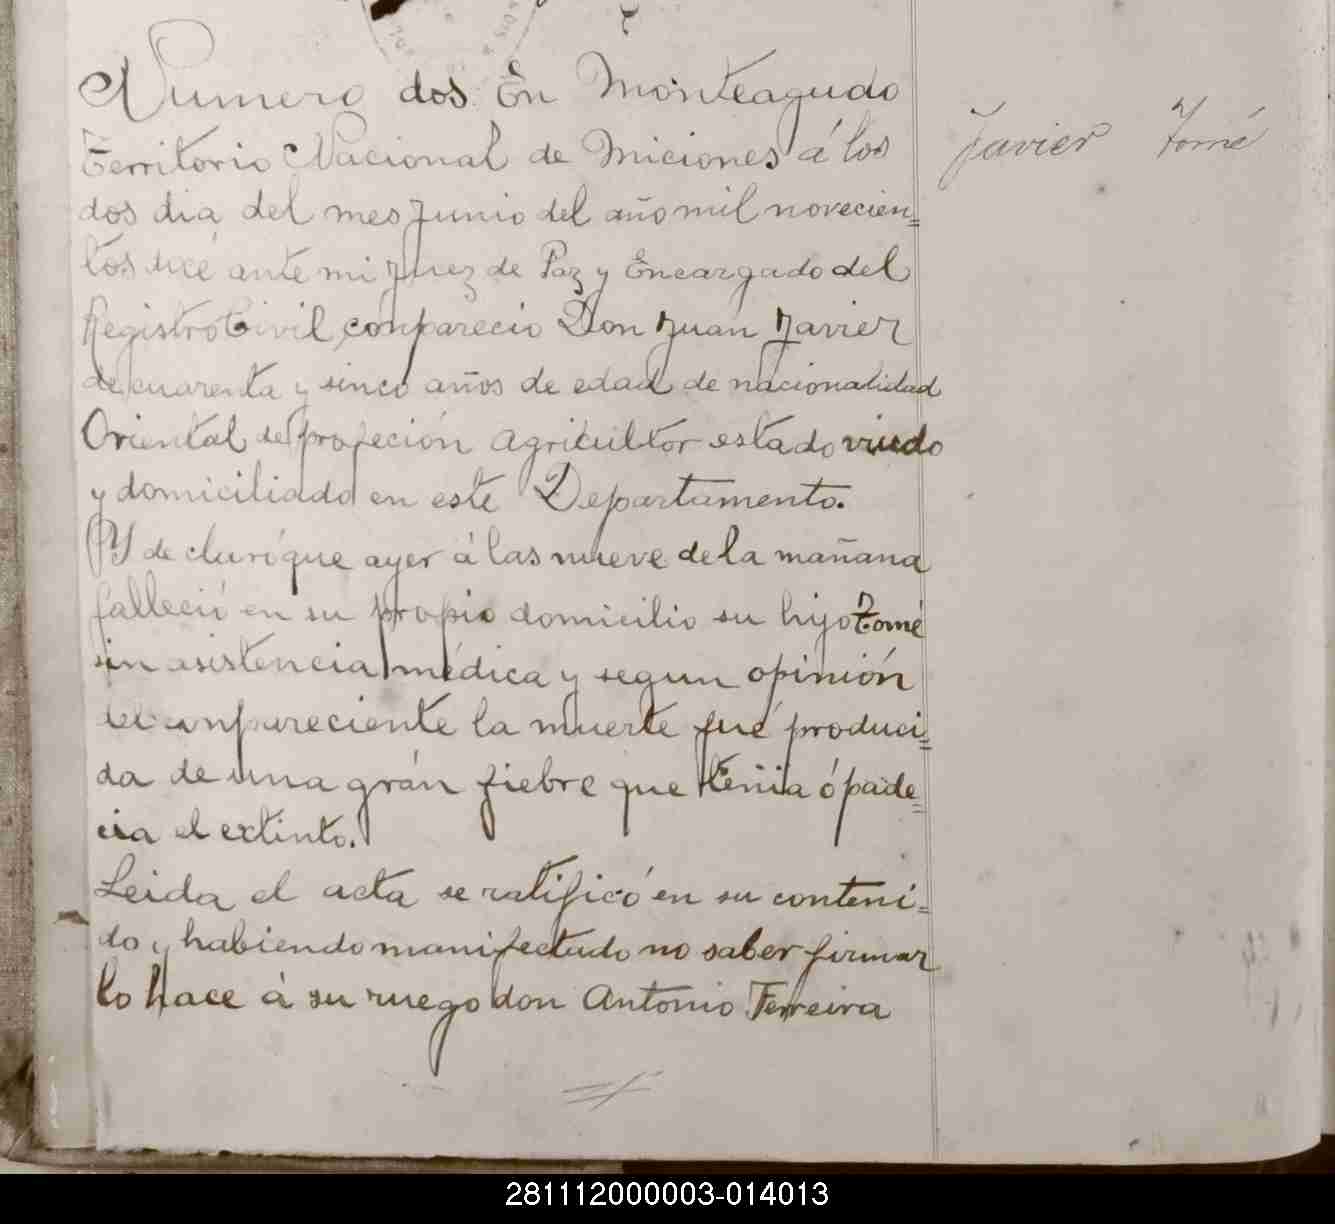 Numero dos. En Monteagudo
Territorio Nacional de Miciones á los
dos dia del mes Junio del año mil novecien=
tos ante mi Juez de Paz y Encargado del
Registro Civil, conparecio Don Juan Javier
de cuarenta y sinco años de edad de nacionalidad
Oriental de profeción agricultor estado viudo
y domiciliado en este Departamento.
Y de claró que ayer á las nueve de la mañana
falleció en su propio domicilio su hijo Tomé
sin asistencia médica y segun opinión
del conpareciente la muerte fué produci=
da de una grán fiebre que tenia ó pade=
cia el extinto.
Leida el acta se ratificó en su conteni=
do y habiendo manifectado no saber firmar
lo hace á su ruego don Antonio Ferreira
Javier Tomé
281112000003-014013